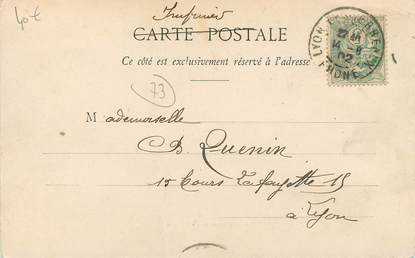 40 €
Imprimés
CARTE POSTALE
Ce côté est exclusivement réservé à l'adresse
73
Mademoiselle
B. Quenin
15 Cours Lafayette 15
à Lyon
LYON
RHONE
02